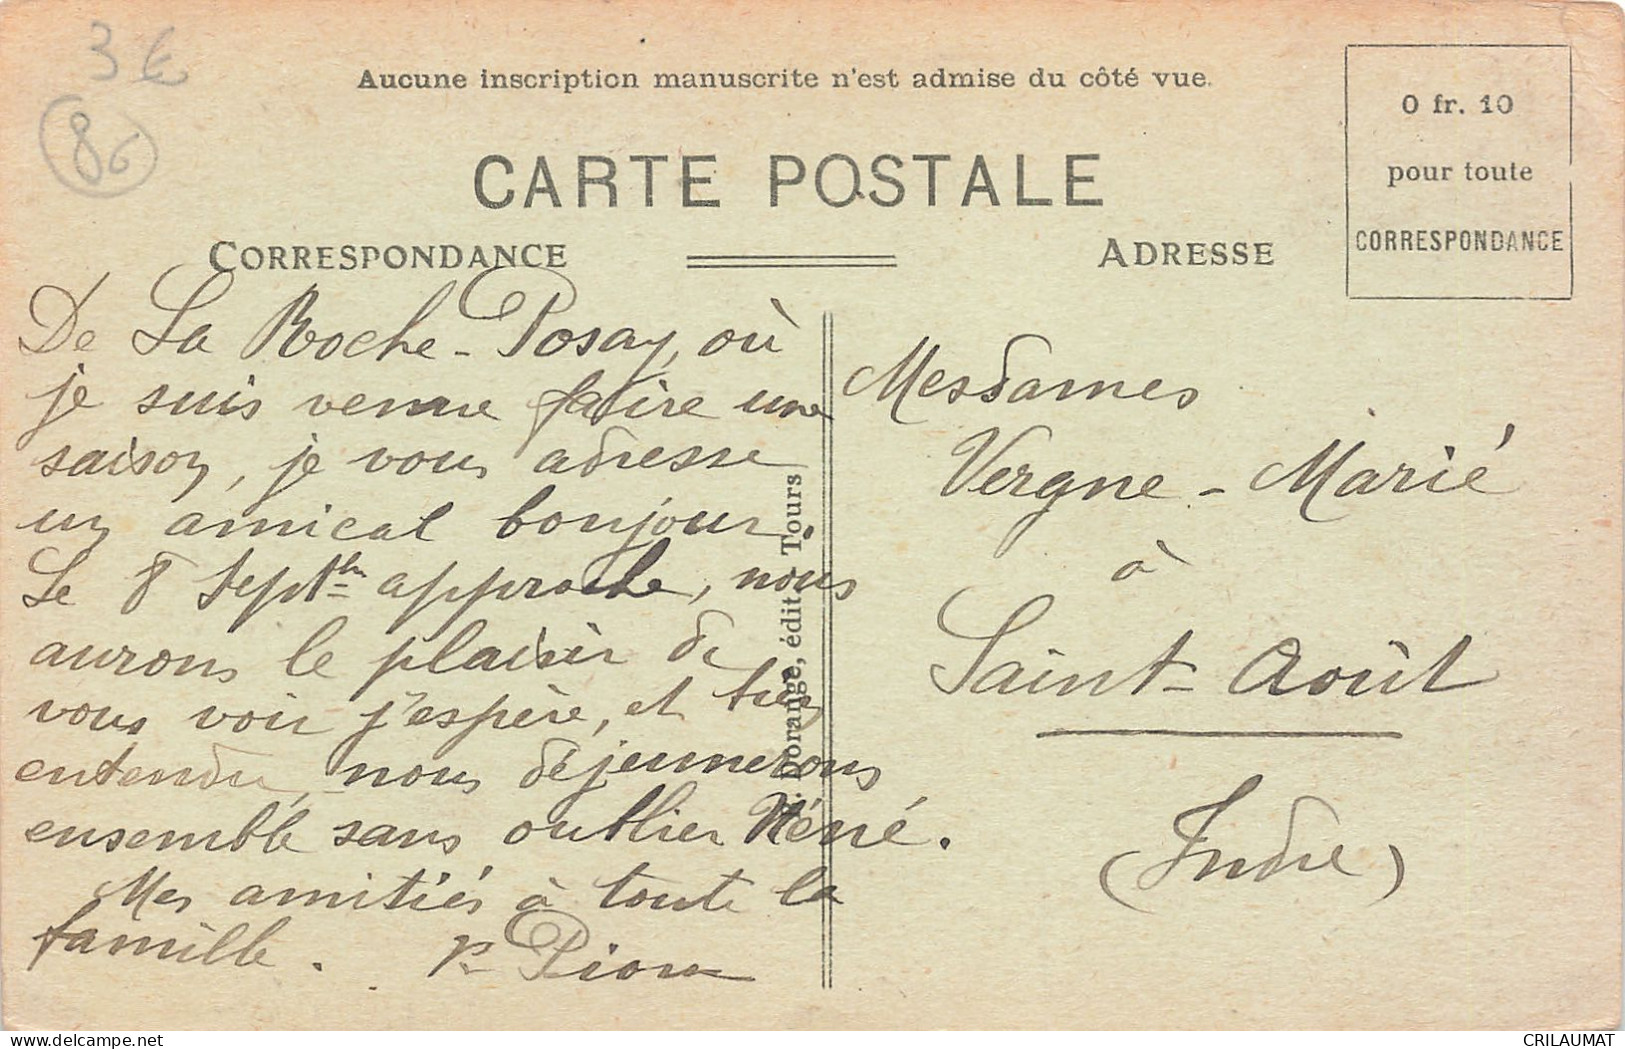 3 €
86
Aucune inscription manuscrite n'est admise du côté vue.
CARTE POSTALE
CORRESPONDANCE
ADRESSE
0 fr. 10
pour toute
CORRESPONDANCE
De La Roche-Posay, où
je suis venue faire une
saison, je vous adresse
un amical bonjour.
Le 8 Septbre approche, nous
aurons le plaisir de
vous voir j'espère, et bien
entendu, nous déjeunerons
ensemble sans oublier Néné.
Mes amitiés à toute la
famille.
Dorange, édit. - Tours
Mesdames
Vergne - Marié
à
Saint-Août
(Indre)
CRILAUMAT